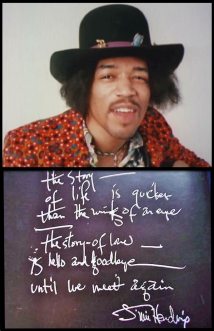 the story
of life is quicker
than the wink of an eye
the story of love
is hello and goodbye
until we meet again
Jimi Hendrix